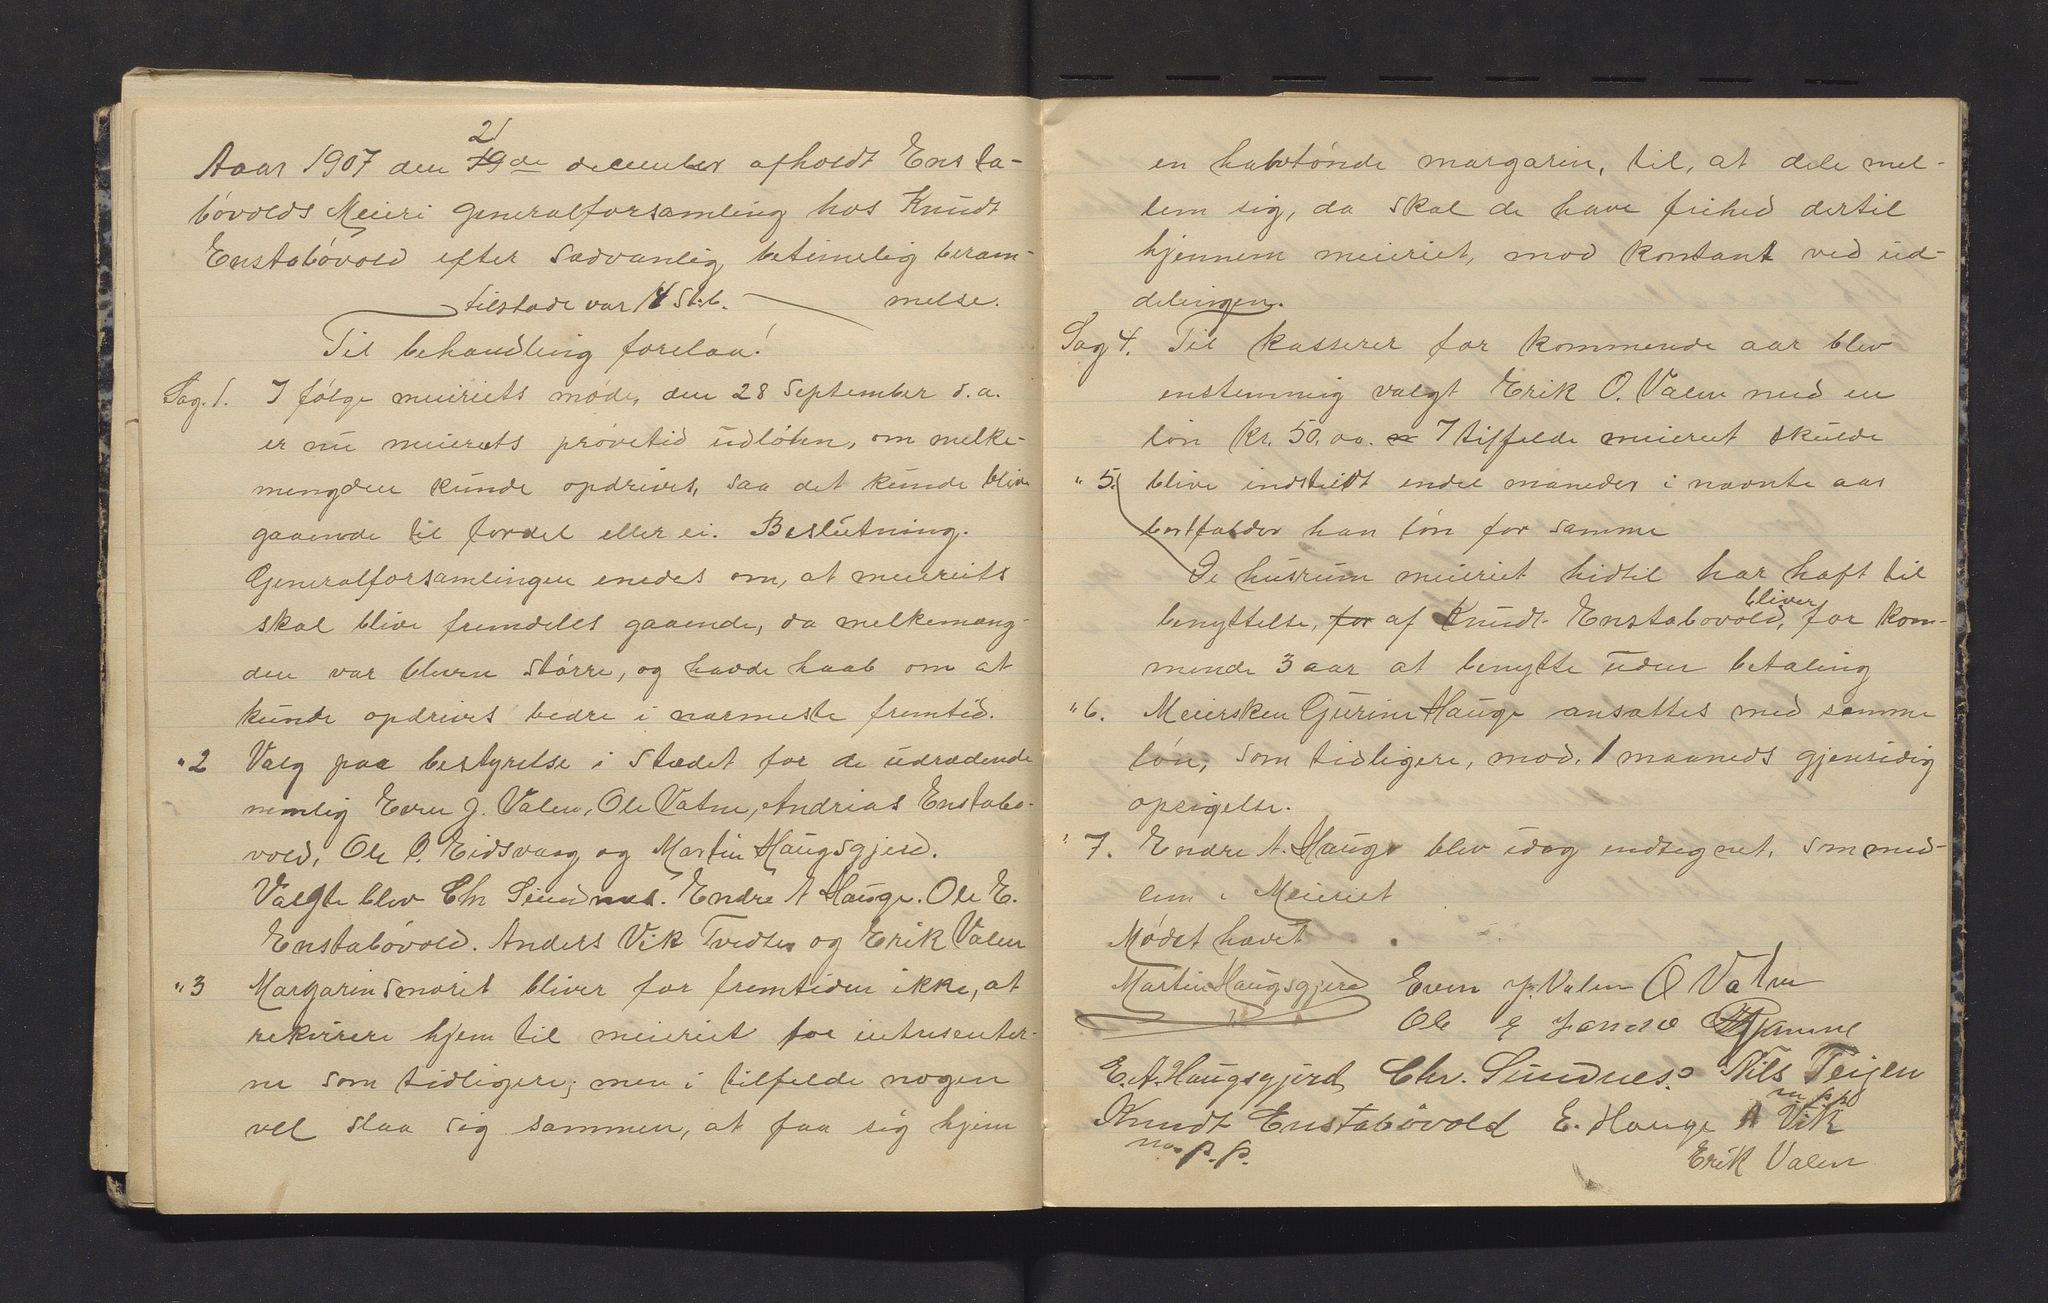 21
Aaar 1907 den 19de december afholdt Ensta-
bóvolds Meieri generalforsamling hos Knudt
Enstabóvold efter sædvanlig betimelig beram-
melse.
tilstæde var 14 Stk.
Til behandling forelaa!
Sag. 1. I fölge meieriets möde, den 28 September d. a.
er nu meieriets prövetid udlöben, om melke-
mengden kunde opdrives, saa det kunde blive
gaaende til fordel eller ei. Beslutning.
Generalforsamlingen enedes om, at meieriets
skal blive fremdeles gaaende, da melkemæng-
den var bleven större, og havde haab om at
kunde opdrives bedre i nærmeste fremtid.
"2 Valg paa bestyrelse i stædet for de udrædende
nemlig Even J. Valen, Ole Vatne, Andrias Enstabo-
vold, Ole O. Eidsvaag og Martin Haugsgjerd.
Valgte blev Chr Sundnes. Endre A Hauge. Ole E.
Enstabóvold. Anders Vik Tvedten og Erik Valen
"3 Margarinsmörit bliver for fremtiden ikke, at
rekvirere hjem til meieriet for intresenter-
ne som tidligere; men i tilfelde nogen
vel slaa sig sammen, at faa sig hjem
en halvtönde margarin, til, at dele mel-
lem sig, da skal de have frihed dertil
hjennem meieriet, mod kontant ved ud-
delingen.
Sag 4. Til kasserer for kommende aar blev
enstemmig valgt Erik O. Valen med en
lön kr. 50,00. I tilfelde meieriet skulde
"5. blive indstildt endel maneder i nævnte aar
bortfalder han lön for samme
De husrum meieriet hidtil har haft til
benyttelse, for af Knudt Enstabovold, bliver for kom-
mende 3 aar at benytte uden betaling
"6. Meiersken Gurine Hauge ansattes med samme
lön, som tidligere, mod. 1 maaneds gjensidig
opsigelse.
"7. Endre A. Hauge blev idag indtegnet, som med-
lem i Meieriet
Mödet hævet
Martin Haugsgjerd Even J. Valen O Vatne
Ole E
E. A. Haugsgjerd Chr. Sundnes. Nils Teigen
m. p. p.
Knudt Enstabövold E. Hauge A Vik
m. p. p.
Erik Valen